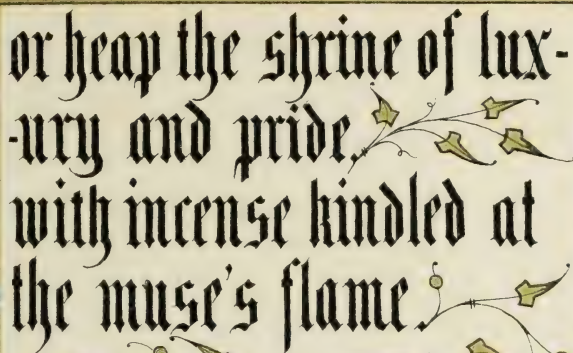 or heap the shrine of lux-
-ury and pride,
with incense kindled at
the muse's flame.